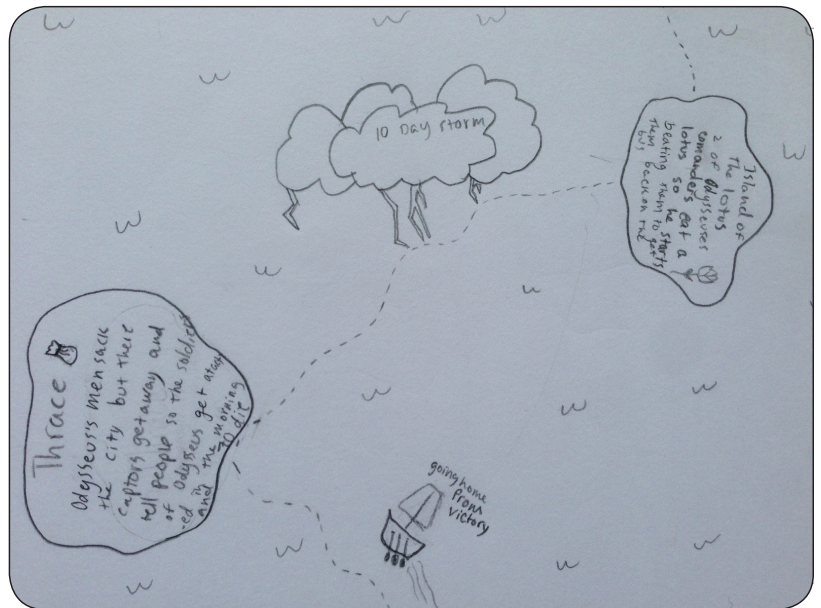 10 Day storm
Island of
The lotus
2 of Odysseuses
comanders eat a
lotus so he starts
beating them to get
Them back on the
bus
Thrace
Odysseus's men sack
the city but there
captors getaway and
tell people so the soldiers
of Odysseus get atack
-ed in the morning
And 70 die
going home
from
victory